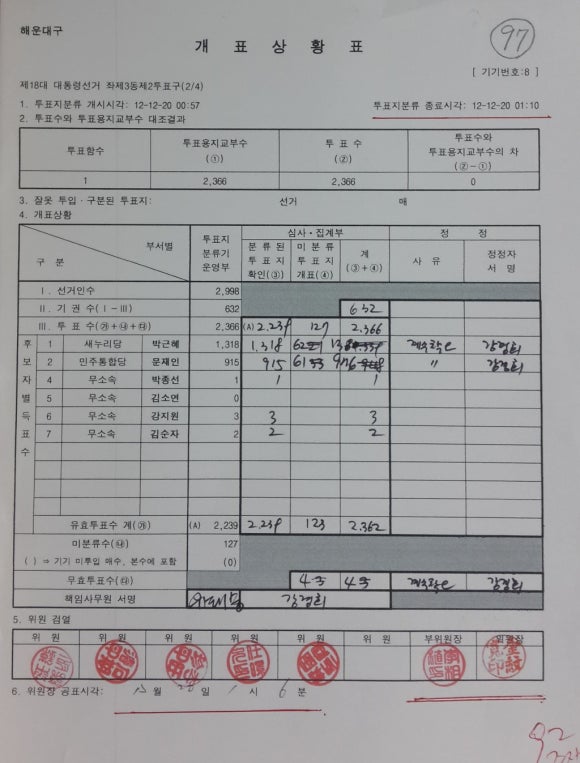 해운대구
개 표 상 황 표
97
[ 기기번호:8 ]
제18대 대통령선거 좌제3동제2투표구(2/4)
1. 투표지분류 개시시각: 12-12-20 00:57
투표지분류 종료시각: 12-12-20 01:10
2. 투표수와 투표용지교부수 대조결과
투표함수 투표용지교부수 (①) 투 표 수 (②) 투표수와 투표용지교부수의 차 (②-①)
1 2,366 2,366 0
3. 잘못 투입·구분된 투표지: 선거 매
4. 개표상황
구 분 부서별 투표지 분류기 운영부 심사·집계부 정 정
분 류 된 투 표 지 확인(③) 미 분 류 투 표 지 개표(④) 계 (③+④) 사 유 정정자 서 명
Ⅰ. 선거인수 2,998
Ⅱ. 기 권 수 (Ⅰ-Ⅲ) 632 632
Ⅲ. 투 표 수 (㉮+㉯+㉰) 2,366 (A) 2.239 127 2.366
후보자별득표수
1 새누리당 박근혜 1,318 1.318 62 계수착오 강경희
2 민주통합당 문재인 915 915 61 976 〃 강경희
4 무소속 박종선 1 1 1
5 무소속 김소연 0
6 무소속 강지원 3 3 3
7 무소속 김순자 2 2 2
유효투표수 계(㉮) (A) 2,239 2.239 123 2.362
미분류수(㉯) 127
( ) ⇒ 기기 미투입 매수, 본수에 포함 (0)
무효투표수(㉰) 4 4 계수착오 강경희
책임사무원 서명 강경희
5. 위원 검열
위 원 위 원 위 원 위 원 위 원 위 원 부위원장 위원장
6. 위원장 공표시각: 12월 20일 1시 6분